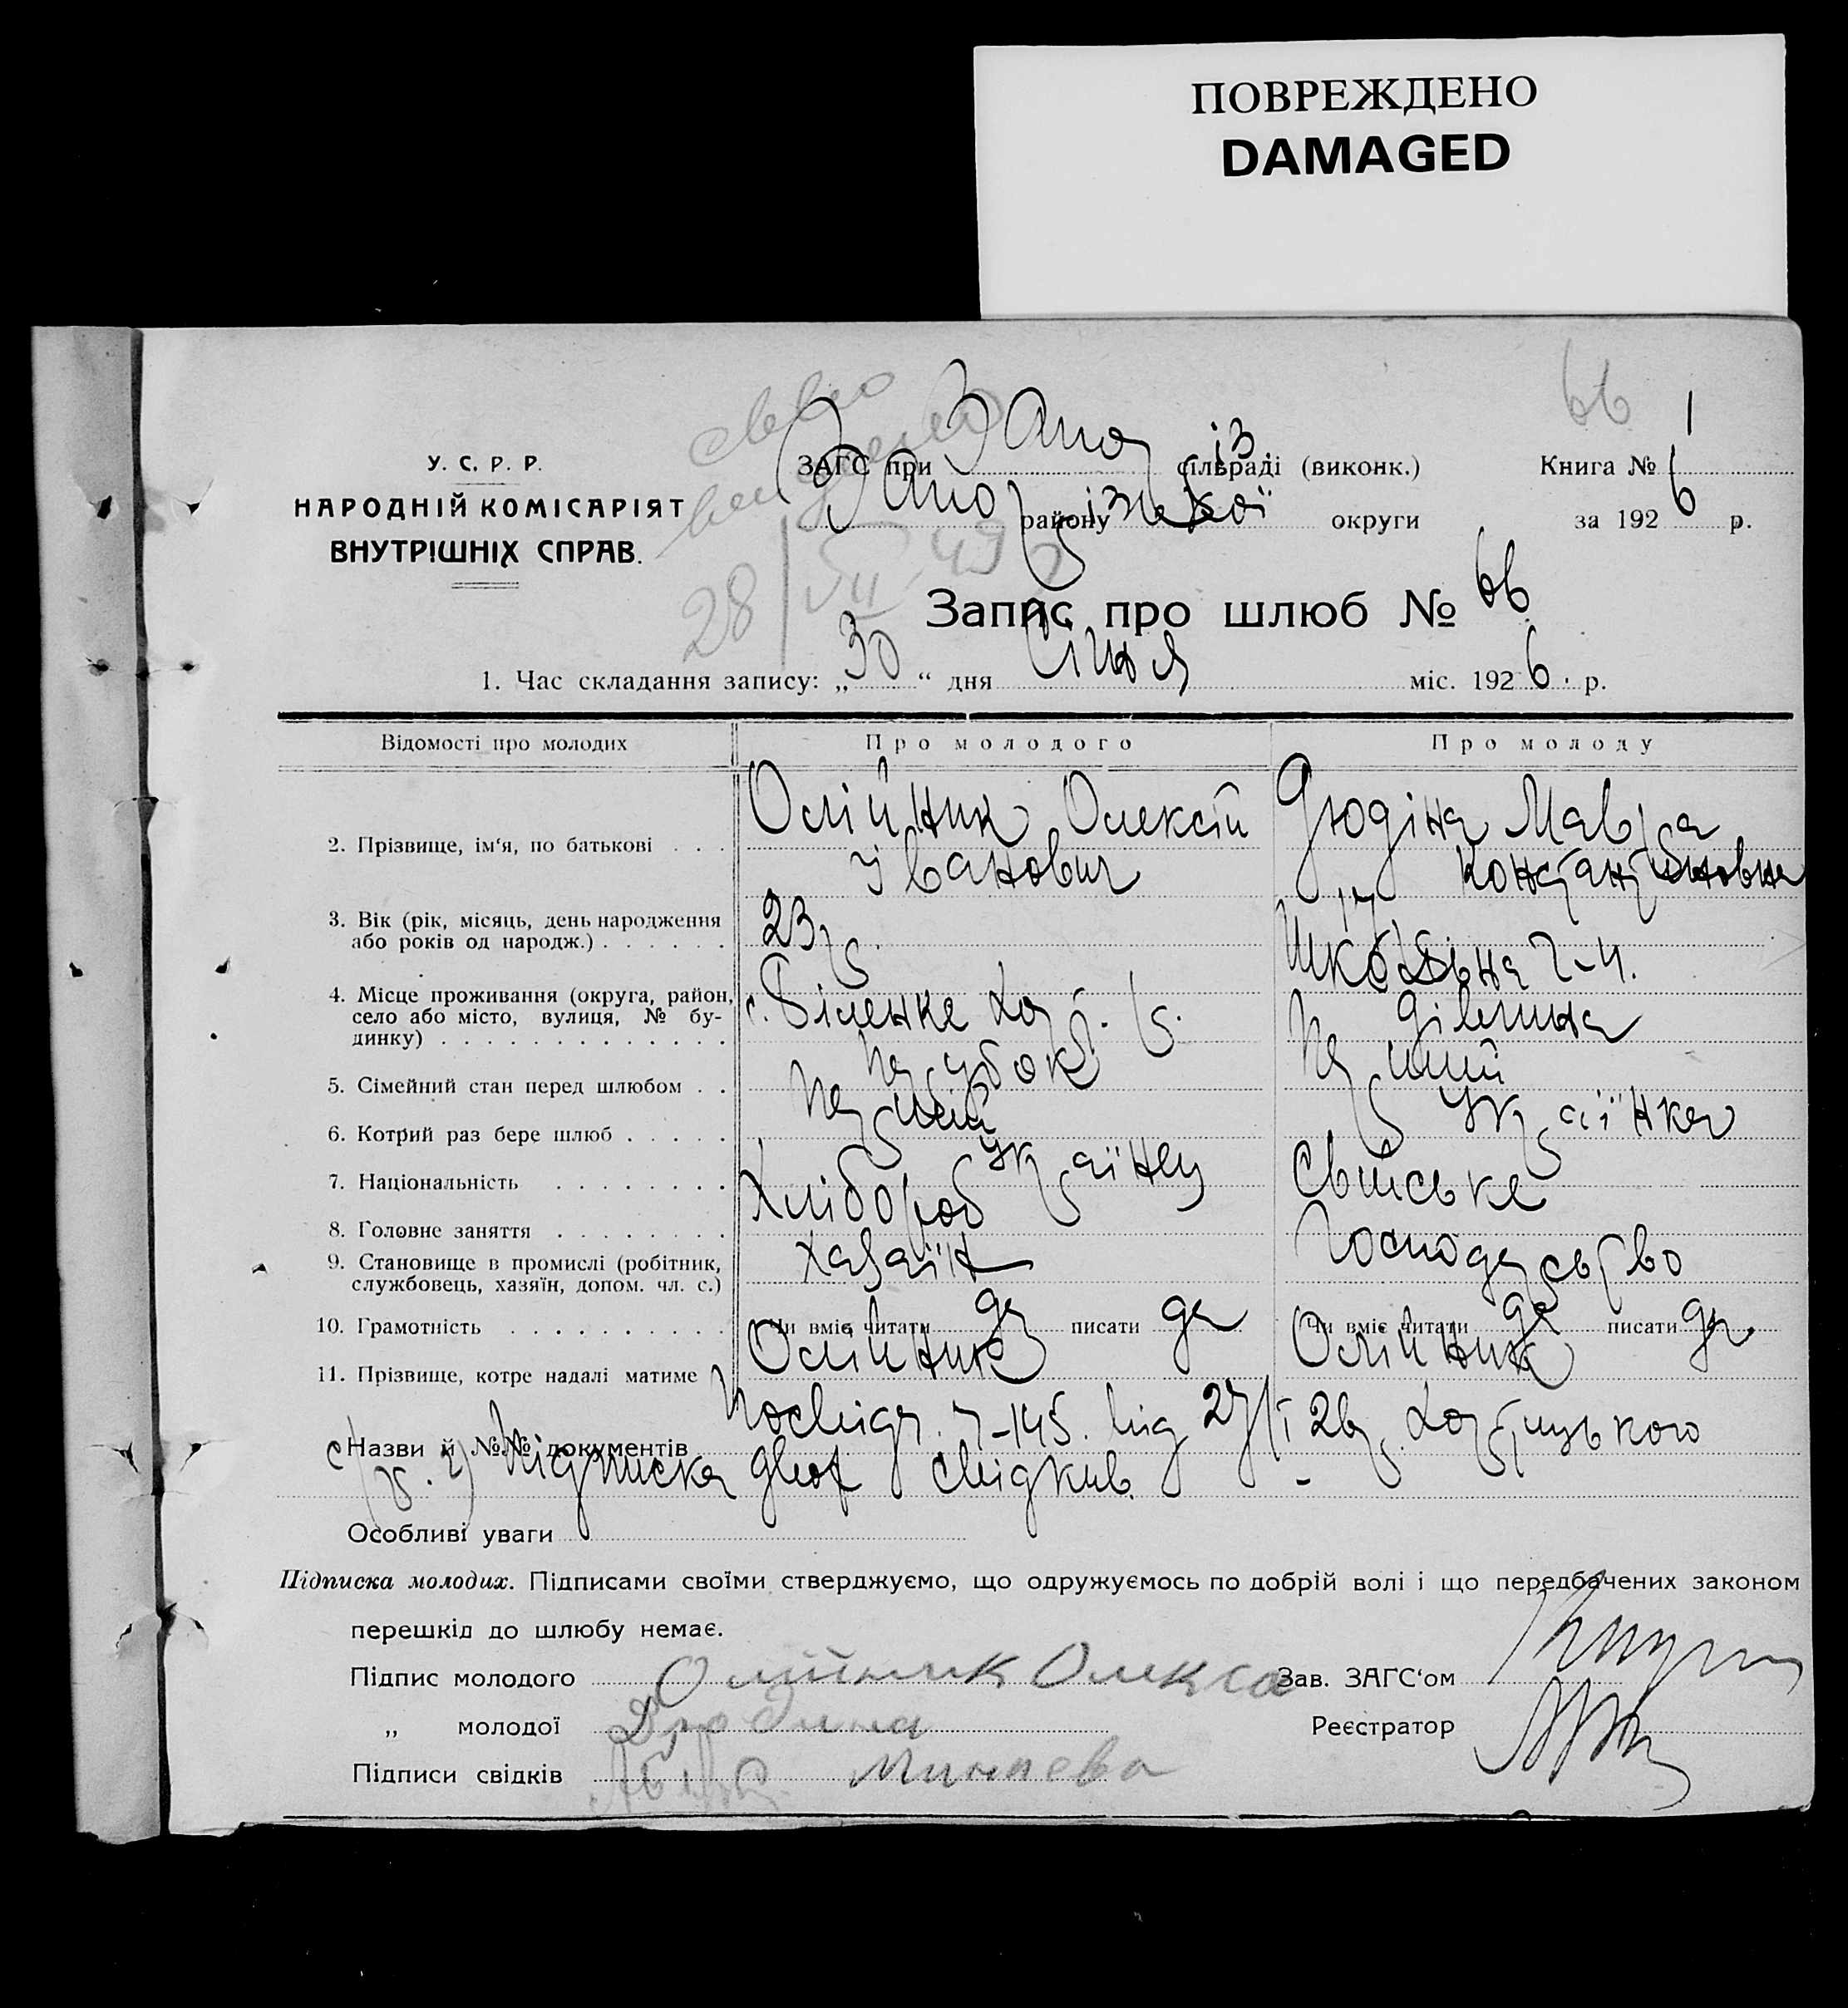 ПОВРЕЖДЕНО
DAMAGED
66
У. С. Р. Р.
НАРОДНІЙ КОМІСАРІЯТ
ВНУТРІШНІХ СПРАВ.
ЗАГС при Запоріз. сільраді (виконк.)
Запорізької району округи
Книга № 1
за 1926 р.
28/VII-49
Запис про шлюб № 66
1. Час складання запису: „30“ дня Січня міс. 1926. р.
Відомості про молодих Про молодого Про молоду
2. Прізвище, ім'я, по батькові . . . Олійник Олексій Іванович Дюдіна Мавра Константиновна
3. Вік (рік, місяць, день народження або років од народж.) . . . . . . 23 р. 17 р.
4. Місце проживання (округа, район, село або місто, вулиця, № будинку) . . . . . . . . . . . . . с. Біленке Хор. р. Шкільна 7-4.
5. Сімейний стан перед шлюбом . . Парубок Дівчина
6. Котрий раз бере шлюб . . . . . Перший Перший
7. Національність . . . . . . . . Українец Українка
8. Головне заняття . . . . . . . . Хлібороб Свійське
9. Становище в промислі (робітник, службовець, хазяїн, допом. чл. с.) хазяїн господарство
10. Грамотність . . . . . . . . . . Чи вміє читати да писати да Чи вміє читати да писати да
11. Прізвище, котре надалі матиме Олійник Олійник
Назви й №№ документів Посвідч. 7-145. від 27/I 26р.
Підписка двох свідків.
Особливі уваги
Підписка молодих. Підписами своїми стверджуємо, що одружуємось по добрій волі і що передбачених законом
перешкід до шлюбу немає.
Підпис молодого Олійник Олекса Зав. ЗАГС'ом
„ молодої Дюдина Реєстратор
Підписи свідків Минаева